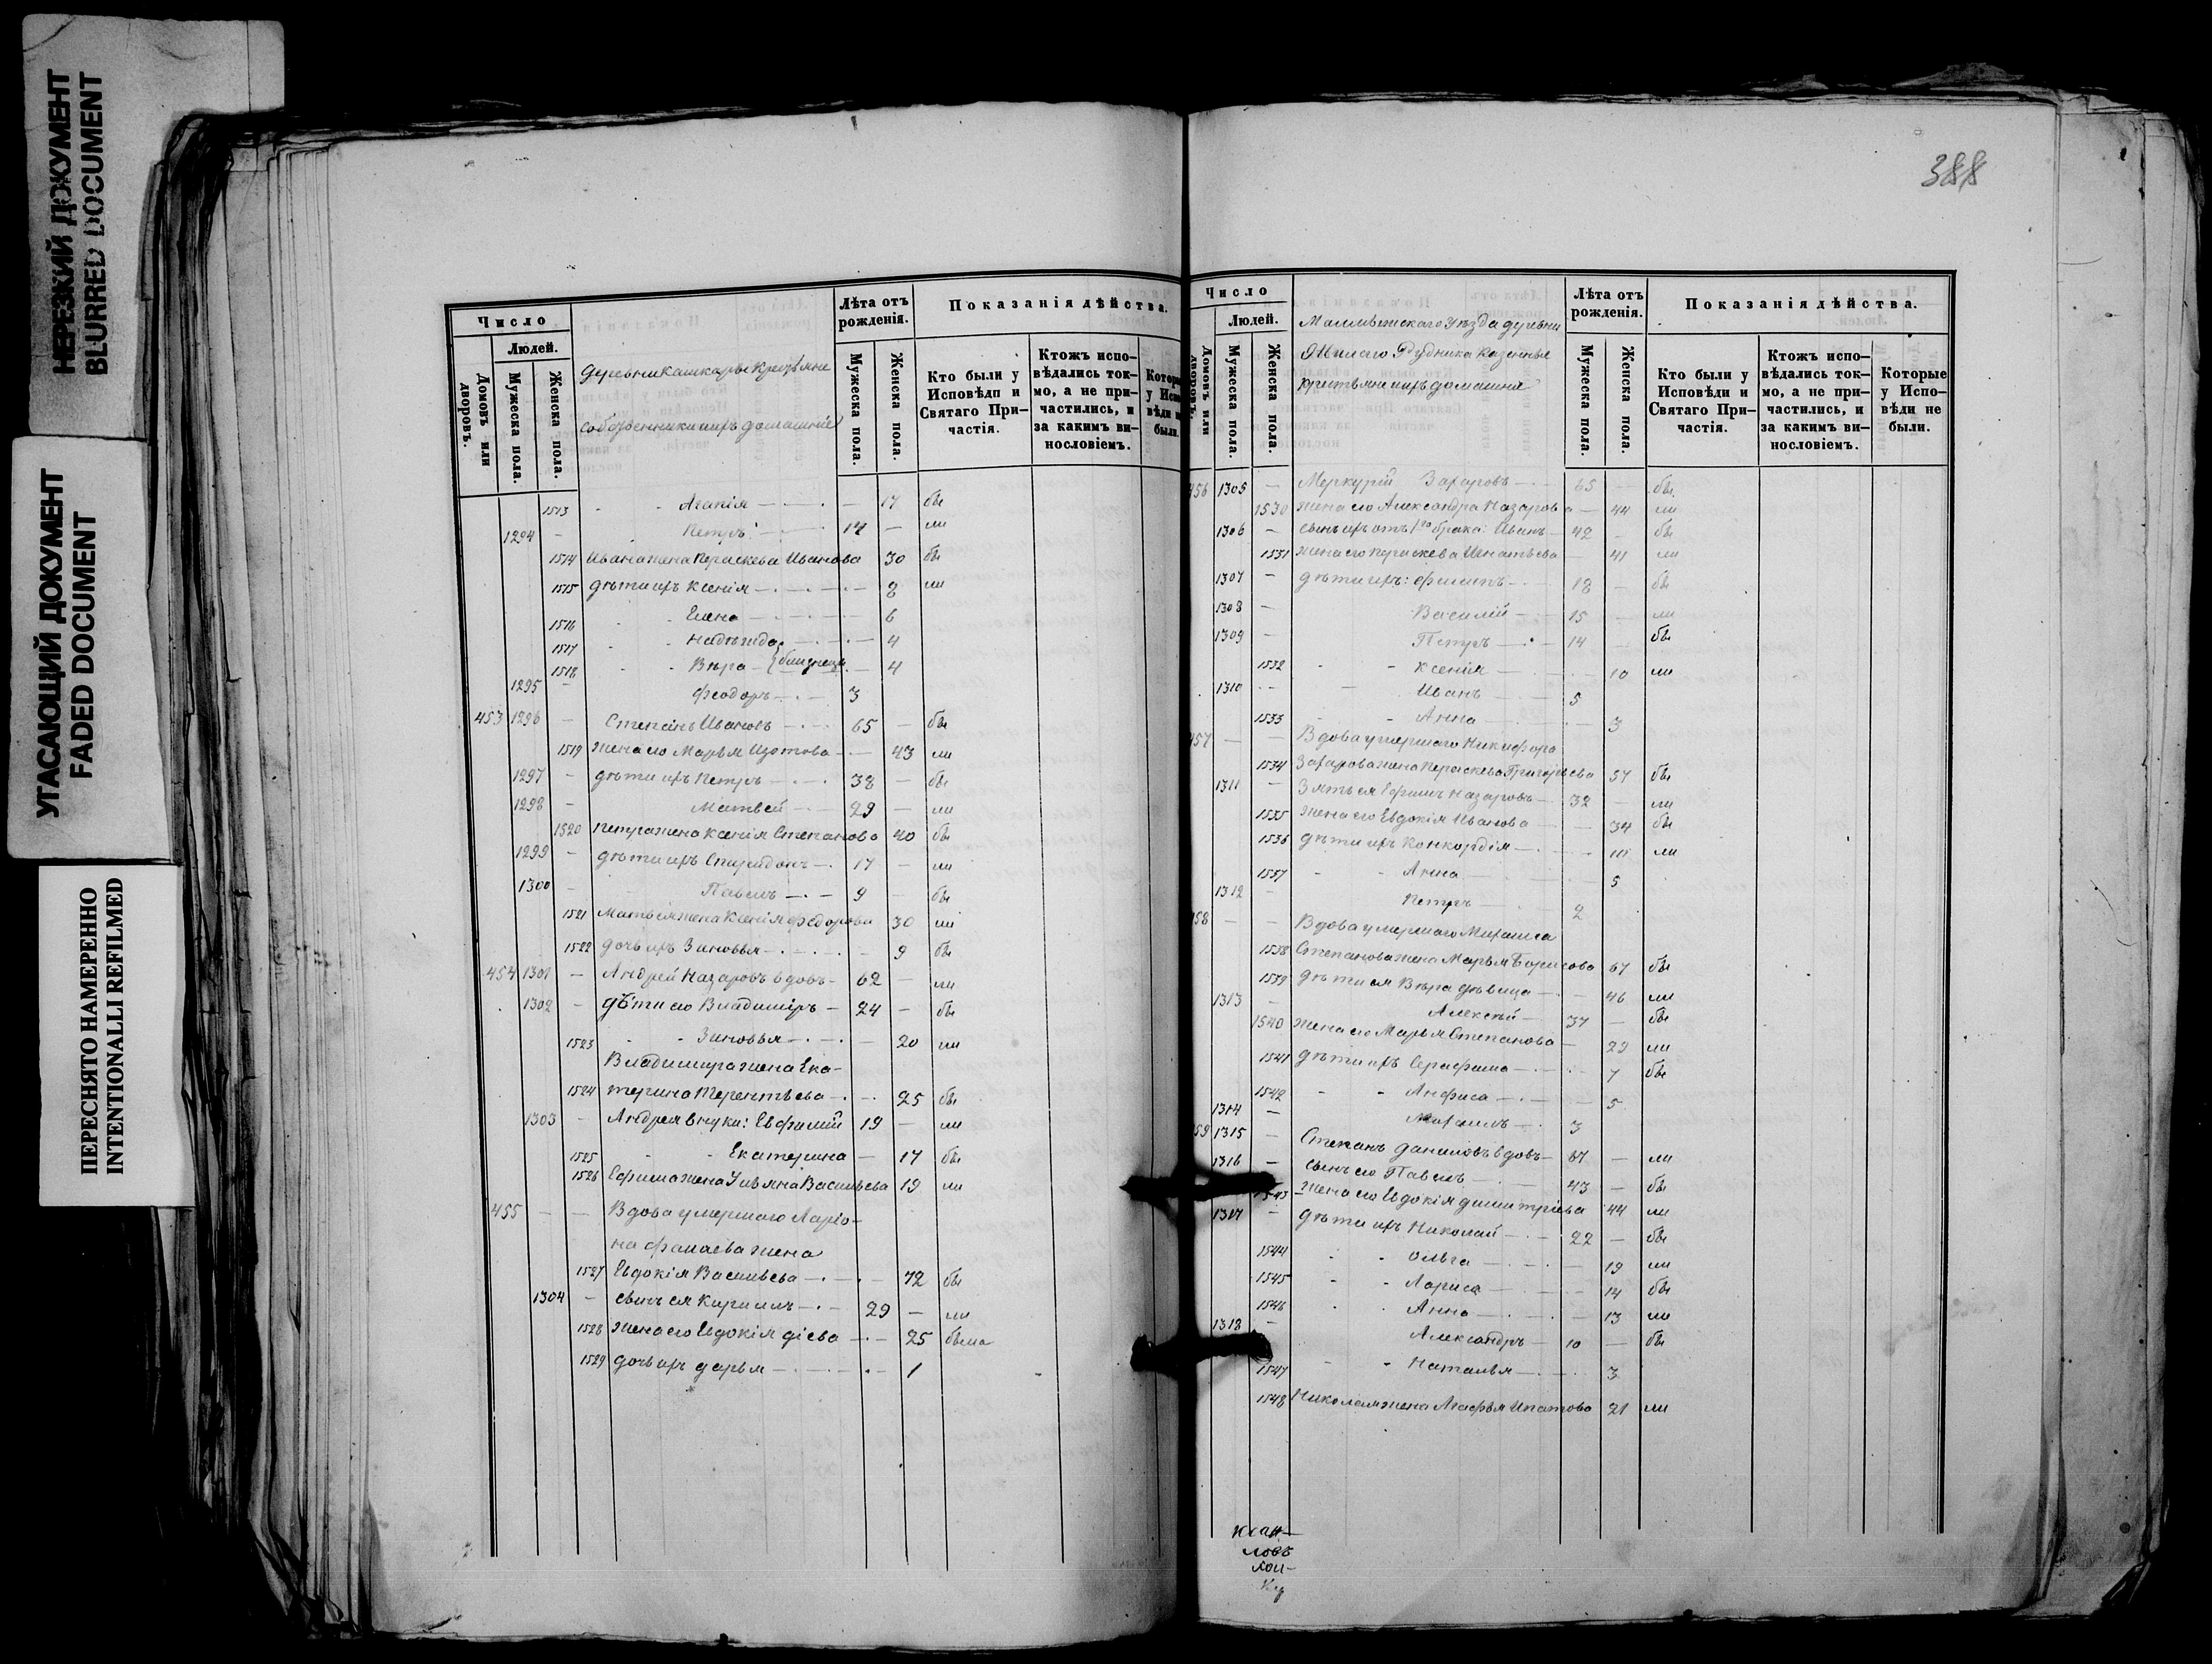 НЕРЕЗКИЙ ДОКУМЕНТ
BLURRED DOCUMENT
УГАСАЮЩИЙ ДОКУМЕНТ
FADED DOCUMENT
ПЕРЕСНЯТО НАМЕРЕННО
INTENTIONALLI REFILMED
Число
Людей.
Домовъ или дворовъ.
Мужеска пола.
Женска пола.
деревни Кашкары Крестьяне
собственники ихъ домашніе
Лѣта отъ рожденія.
Мужеска пола.
Женска пола.
Показанія дѣйства.
Кто были у Исповѣди и Святаго При-частія.
Ктожъ испо-вѣдались ток-мо, а не при-частились, и за какимъ ви-нословіемъ.
1513 - - Агапія — — 17 бы
1294 — Петръ — 14 — ли
1514 Ивана жена Параскева Иванова 30 бы
1515 дѣти ихъ Ксенія — — 8 ли
1516 - - Елена — — 6
1517 - - Надежда — — 4
1518 - - Вѣра — близнецы — 4
1295 — Феодоръ — 3
453 1296 — Степанъ Ивановъ — 65 — бы
1519 жена его Марья Изотова — — 43 ли
1297 — дѣти ихъ Петръ — 38 — бы
1298 — Матвей — 29 — ли
1520 Петра жена Ксенія Степанова 40 бы
1299 — дѣти ихъ Спиридонъ — 17 — ли
1300 — Павелъ — 9 — бы
1521 Матвея жена Ксенія Федорова 30 ли
1522 дочь ихъ Зиновья — — 9 бы
454 1301 — Андрей Назаровъ вдовъ - 62 — ли
1302 — дѣти его Владиміръ — 24 — бы
1523 - - Зиновья — — 20 ли
Владимира жена Ека-
1524 терина Терентьева — — 25 бы
1303 — Андрея внуки: Евфимій 19 — ли
1525 - - Екатерина — 17 бы
1526 Ефима жена Ульяна Васильева 19 ли
455 — — Вдова умершаго Ларіо-
на Фалалѣева жена
1527 Евдокія Васильева — — 72 бы
1304 — сынъ ея Кирилъ — 29 — ли
1528 жена его Евдокія Діева — — 25 была
1529 дочь ихъ Дарья — — 1
388
Число
Людей.
Домовъ или дворовъ.
Мужеска пола.
Женска пола.
уѣзда деревни
Рудника казенные
ихъ домашніе
Лѣта отъ рожденія.
Мужеска пола.
Женска пола.
Показанія дѣйства.
Кто были у Исповѣди и Святаго При-частія.
Ктожъ испо-вѣдались ток-мо, а не при-частились, и за какимъ ви-нословіемъ.
Которые у Испо-вѣди не были.
456 1305 — Меркурій Захаровъ — 65 — бы
1530 жена его Александра Назарова — 44 ли
1306 — сынъ ихъ отъ 1го брака: Иванъ — 42 — бы
1531 жена его Параскева Игнатьева — 41 ли
1307 — дѣти ихъ: Филипъ — 18 — бы
1308 — Василій — 15 — ли
1309 — Петръ — 14 — бы
1532 - - Ксенія — — 10 ли
1310 — Иванъ — 5
1533 - - Анна — — 3
457 — — Вдова умершаго Никифора
1534 Захарова жена Параскева Григорьева 57 бы
1311 — Зять ея Ефимъ Назаровъ — 32 — ли
1535 жена его Евдокія Иванова — — 34 бы
1536 дѣти ихъ Конкордія — — ли
1537 - - Анна — — 5
1312 — Петръ — 2
458 — — Вдова умершаго Михаила
1538 Степанова жена Марья Борисова 67 бы
1539 дѣти ея Вѣра дѣвица — — 46 ли
1313 — Алексѣй — 37 — бы
1540 жена его Марья Степанова — 29 ли
1541 дѣти ихъ Серафима — — 7 бы
1542 - - Анфиса — — 5
1314 — Михаилъ — 3
459 1315 — Степанъ Даниловъ вдовъ — 67 — ли
1316 — сынъ его Павелъ — 43 — бы
1543 жена его Евдокія Димитріева 44 ли
1317 — дѣти ихъ Николай — 22 — бы
1544 - - Ольга — — 19 ли
1545 - - Лариса — — 14 бы
1546 - - Анна — — 13 ли
1318 — Александръ — 10 — бы
1547 - - Наталья — — 3
1548 Николая жена Агафья Ипатова 21 ли